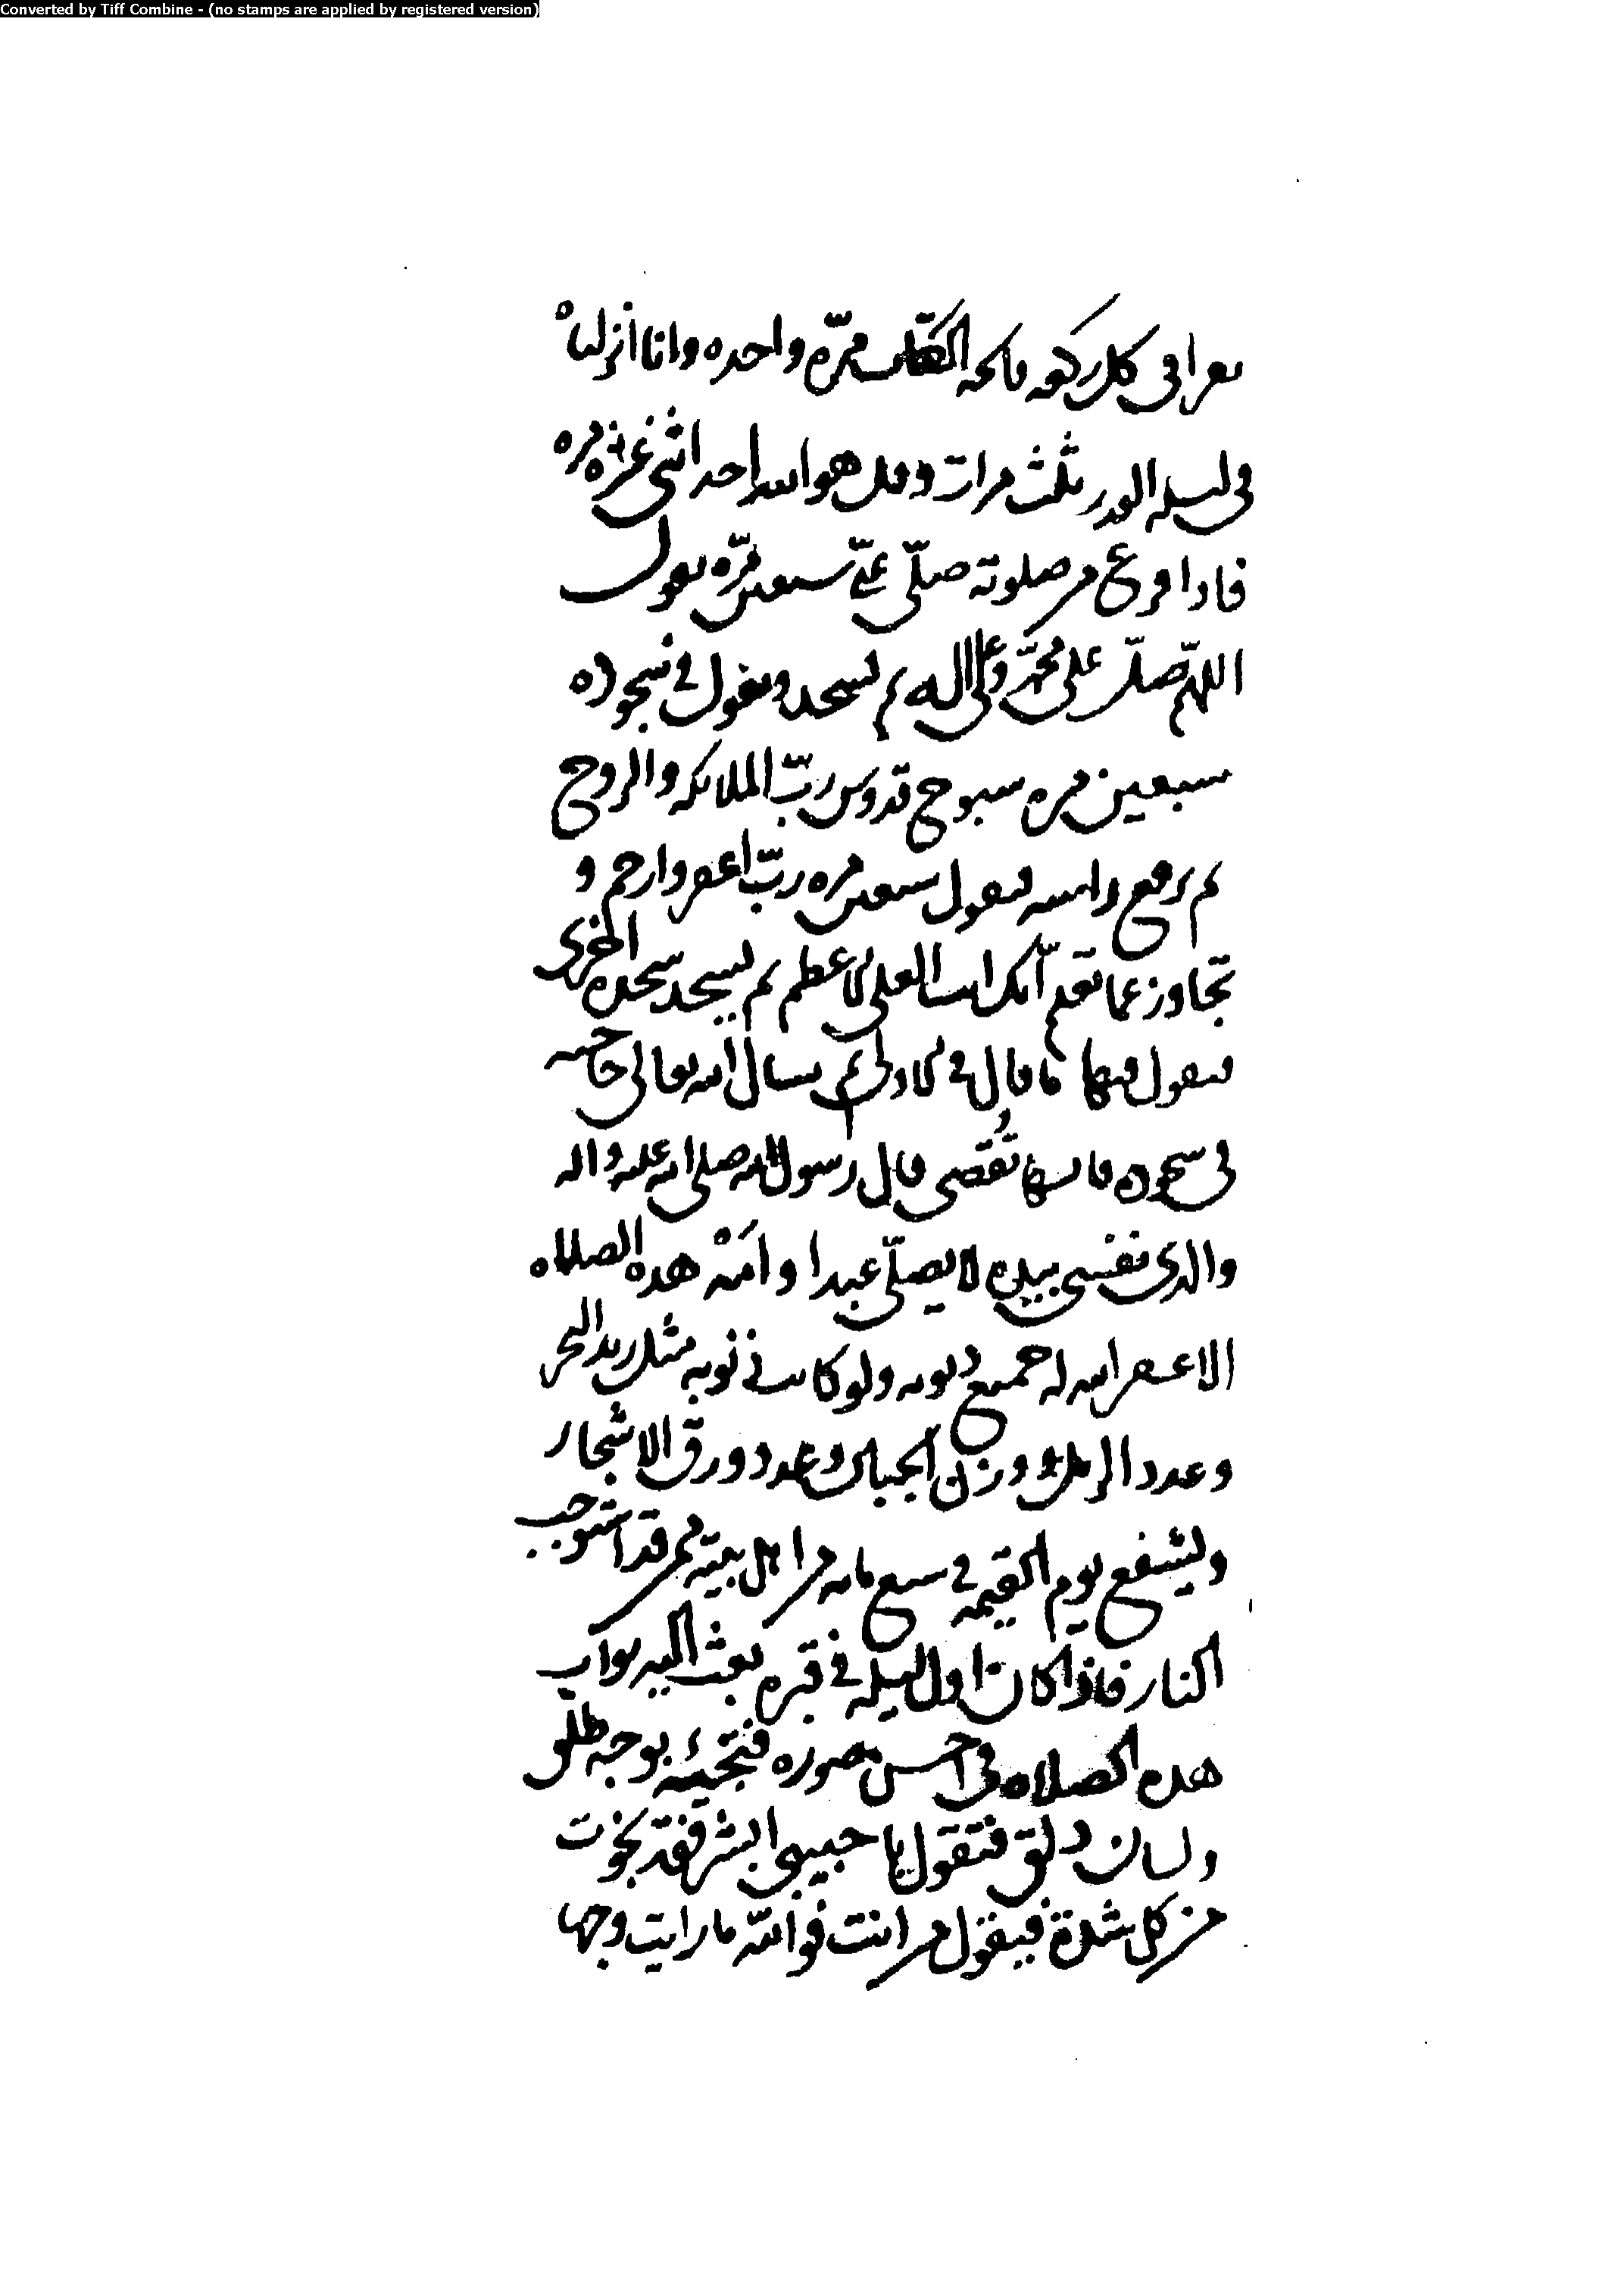 Converted by Tiff Combine - (no stamps are applied by registered version)
يقرا في كل ركعه فاتحه الكتاب مرّه واحده وانا انزلناه
في ليله القدر ثلث مرات وقل هو الله احد اثني عشره مره
فاذا فرغ من صلوته صلّى عليّ سبعين مرّه يقول
اللهمّ صلّ على محمّد وعلى اله ثم يسجد ويقول في سجوده
سبعين مره سبوح قدوس ربّ الملائكه والروح
ثم يرفع راسه فيقول سبعين مره ربّ اغفر وارحم و
تجاوز عما تعلم انّك انت العلي الاعظم ثم يسجد سجده اخرى
فيقول فيها ما قال في الاولى ثم يسال الله تعالى حاجته
في سجوده فانها تُقضى قال رسول الله صلى الله عليه واله
والذي نفسي بيده لا يصلّي عبدا وامَهْ هذه الصلاه
الا غفر الله له جميع ذنوبه ولو كانت ذنوبه مثل زبد البحر
وعدد الرمل ووزن الجبال وعدد ورق الاشجار
ويشفع يوم القيمه في سبع مائه من اهل بيته ممن قد استوجب
النار فاذا كان اول ليله في قبره بعث اليه ثواب
هذه الصلاه في احسن صوره فتجيئه بوجه طلق
ولسان ذلق فتقول يا حبيبي ابشر فقد نجوت
من كل شدة فيقول من انت فوالله ما رايت وجها